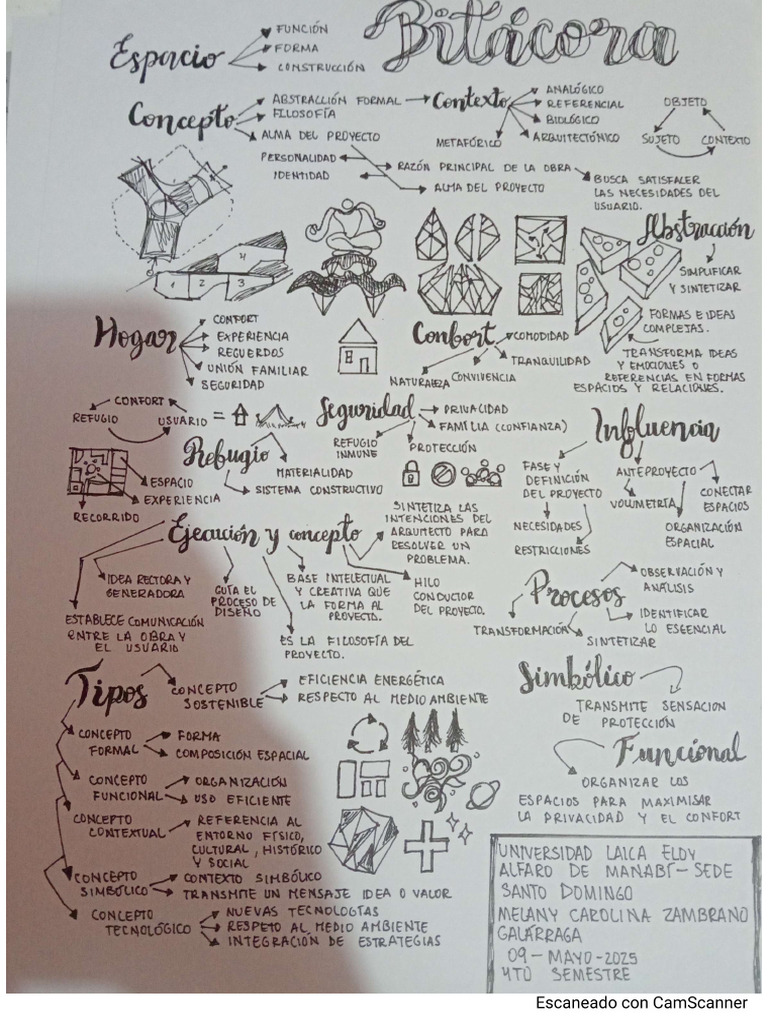 Bitácora
Espacio
FUNCIÓN
FORMA
CONSTRUCCIÓN
Concepto
ABSTRACCIÓN FORMAL
FILOSOFÍA
ALMA DEL PROYECTO
Contexto
ANALÓGICO
REFERENCIAL
BIOLÓGICO
ARQUITECTÓNICO
METAFÓRICO
OBJETO
SUJETO
CONTEXTO
PERSONALIDAD
IDENTIDAD
RAZÓN PRINCIPAL DE LA OBRA
ALMA DEL PROYECTO
BUSCA SATISFALER
LAS NECESIDADES DEL
USUARIO.
1 2 3 4
Abstracción
SIMPLIFICAR
Y SINTETIZAR
FORMAS E IDEAS
COMPLEJAS.
TRANSFORMA IDEAS
Y EMOCIONES O
REFERENCIAS EN FORMAS
ESPACIOS Y RELACIONES.
Hogar
CONFORT
EXPERIENCIA
RECUERDOS
UNIÓN FAMILIAR
SEGURIDAD
Confort
COMODIDAD
TRANQUILIDAD
CONVIVENCIA
NATURALEZA
CONFORT
REFUGIO
USUARIO =
Seguridad
PRIVACIDAD
FAMILIA (CONFIANZA)
REFUGIO
INMUNE
PROTECCIÓN
Influencia
FASE Y
DEFINICIÓN
DEL PROYECTO
NECESIDADES
RESTRICCIONES
ANTEPROYECTO
VOLUMETRÍA
CONECTAR
ESPACIOS
ORGANIZACIÓN
ESPACIAL
Refugio
MATERIALIDAD
SISTEMA CONSTRUCTIVO
ESPACIO
EXPERIENCIA
RECORRIDO
Ejecución y concepto
SINTETIZA LAS
INTENCIONES DEL
ARQUITECTO PARA
RESOLVER UN
PROBLEMA.
IDEA RECTORA Y
GENERADORA
ESTABLECE COMUNICACIÓN
ENTRE LA OBRA Y
EL USUARIO
GUÍA EL
PROCESO DE
DISEÑO
BASE INTELECTUAL
Y CREATIVA QUE
LA FORMA AL
PROYECTO.
ES LA FILOSOFÍA DEL
PROYECTO.
HILO
CONDUCTOR
DEL PROYECTO.
Procesos
OBSERVACIÓN Y
ANÁLISIS
IDENTIFICAR
LO ESENCIAL
SINTETIZAR
TRANSFORMACIÓN
Tipos
CONCEPTO
SOSTENIBLE
EFICIENCIA ENERGÉTICA
RESPECTO AL MEDIO AMBIENTE
CONCEPTO
FORMAL
FORMA
COMPOSICIÓN ESPACIAL
CONCEPTO
FUNCIONAL
ORGANIZACIÓN
USO EFICIENTE
CONCEPTO
CONTEXTUAL
REFERENCIA AL
ENTORNO FÍSICO,
CULTURAL, HISTÓRICO
Y SOCIAL
CONCEPTO
SIMBÓLICO
CONTEXTO SIMBÓLICO
TRANSMITE UN MENSAJE IDEA O VALOR
CONCEPTO
TECNOLÓGICO
NUEVAS TECNOLOGÍAS
RESPETO AL MEDIO AMBIENTE
INTEGRACIÓN DE ESTRATEGIAS
Simbólico
TRANSMITE SENSACION
DE PROTECCIÓN
Funcional
ORGANIZAR LOS
ESPACIOS PARA MAXIMISAR
LA PRIVACIDAD Y EL CONFORT
UNIVERSIDAD LAICA ELOY
ALFARO DE MANABÍ - SEDE
SANTO DOMINGO
MELANY CAROLINA ZAMBRANO
GALÁRRAGA
09 - MAYO - 2025
4TO SEMESTRE
Escaneado con CamScanner